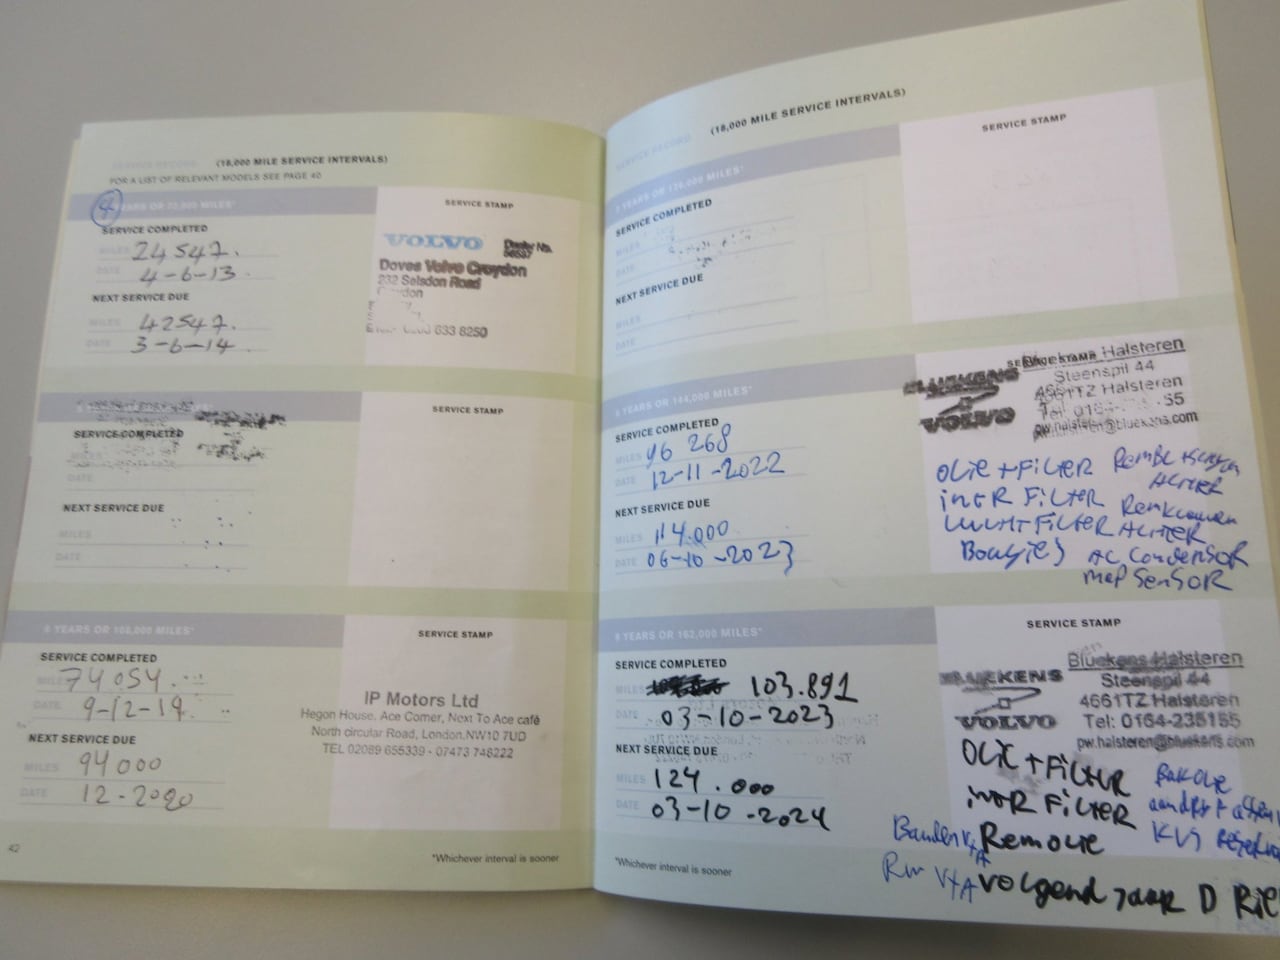 SERVICE RECORD (18,000 MILE SERVICE INTERVALS)
FOR A LIST OF RELEVANT MODELS SEE PAGE 40
4 YEARS OR 72,000 MILES*
SERVICE STAMP
SERVICE COMPLETED
MILES 24547.
DATE 4-6-13
NEXT SERVICE DUE
MILES 42547.
DATE 3-6-14
VOLVO Dealer No.
Doves Volvo Croydon
232 Selsdon Road
Croydon
633 8250
SERVICE STAMP
SERVICE COMPLETED
MILES
DATE
NEXT SERVICE DUE
MILES
DATE
6 YEARS OR 108,000 MILES*
SERVICE STAMP
SERVICE COMPLETED
MILES 74054.
DATE 9-12-19.
NEXT SERVICE DUE
MILES 94000
DATE 12-2020
IP Motors Ltd
Hegon House, Ace Corner, Next To Ace café
North circular Road, London, NW10 7UD
TEL 02089 655339 - 07473 748222
42
*Whichever interval is sooner
SERVICE RECORD (18,000 MILE SERVICE INTERVALS)
7 YEARS OR 126,000 MILES*
SERVICE STAMP
SERVICE COMPLETED
MILES
DATE
NEXT SERVICE DUE
MILES
DATE
8 YEARS OR 144,000 MILES*
SERVICE STAMP
SERVICE COMPLETED
MILES 96 268
DATE 12-11-2022
NEXT SERVICE DUE
MILES 114.000
DATE 06-10-2023
BLUEKENS
VOLVO
Bluekens Halsteren
Steenspil 44
4661TZ Halsteren
pw.halsteren@bluekens.com
OLIE + FILTER
ACHTER
INTR FILTER
LUCHTFILTER ACHTER
Bougies AC CONDENSOR
MAP SENSOR
9 YEARS OR 162,000 MILES*
SERVICE STAMP
SERVICE COMPLETED
MILES 103.891
DATE 03-10-2023
NEXT SERVICE DUE
MILES 124.000
DATE 03-10-2024
BLUEKENS
VOLVO
Bluekens Halsteren
Steenspil 44
4661TZ Halsteren
Tel: 0164-235155
pw.halsteren@bluekens.com
OLIE + FILTER
INTR FILTER
Banden V+A Remolie
Rm V+A Volgend jaar D Rie
*Whichever interval is sooner